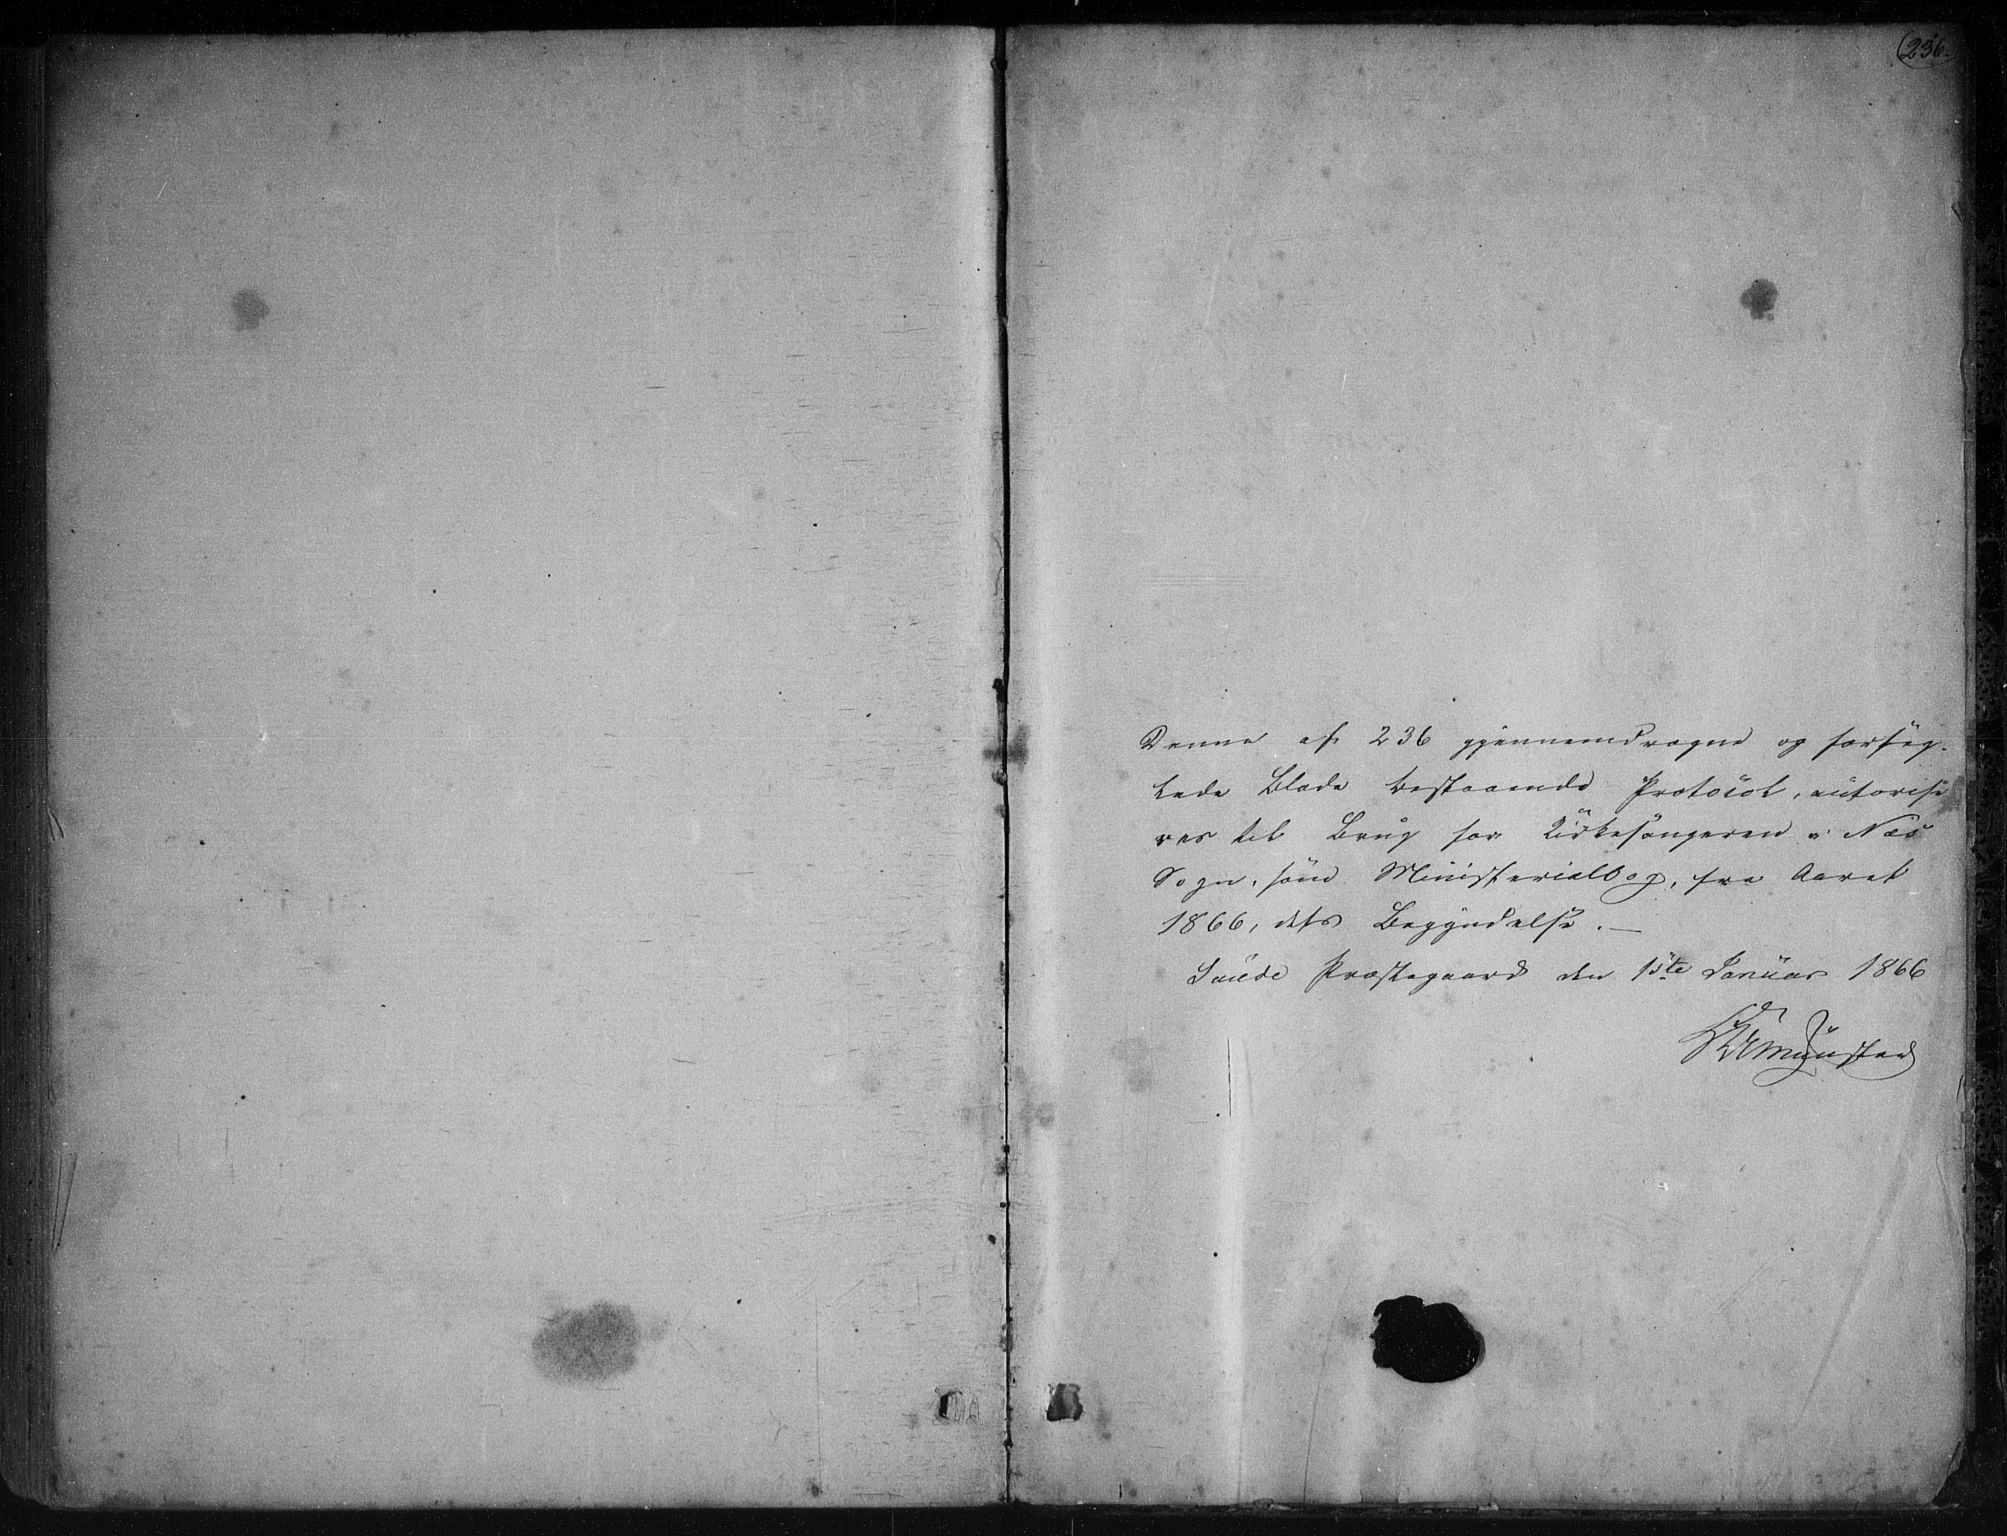 236.
Denne af 236 gjennemdragne og forseg-
lede Blade bestaaende Protocol, autorise
res til Brug for Kirkesangeren i Næs
Sogn, som Ministerialbog, fra Aaret
1866, dets Begyndelse. —
Saude Præstegaard den 1ste Januar 1866
Münster